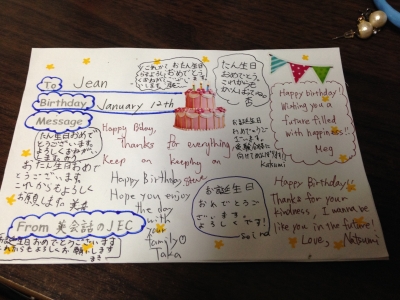 To Jean
Birthday January 12th
Message
おたん生日
おめでとう
たん生日
おめでとう
これからも
Happy birthday!
Wishing you a
future filled
with happiness!!
Meg
Happy Bday,
Thanks for everything
Keep on keeping on
Steve
お誕生日
おめでとうご
ざいます。
Katsumi
たん生日おめで
とうございます。
お誕生日おめで
とうございます
これからもよろしく
お願いします
Happy Birthday
Hope you enjoy
the day
with
your
family
Taka
お誕生日
おめでとうご
ざいます。
よろしくです!
Happy Birthday
Thanks for your
kindness, I wanna be
like you in the future!
Love, Natsumi
From 英会話のJEC
お誕生日おめでとうございます
これからもよろしくお願いします